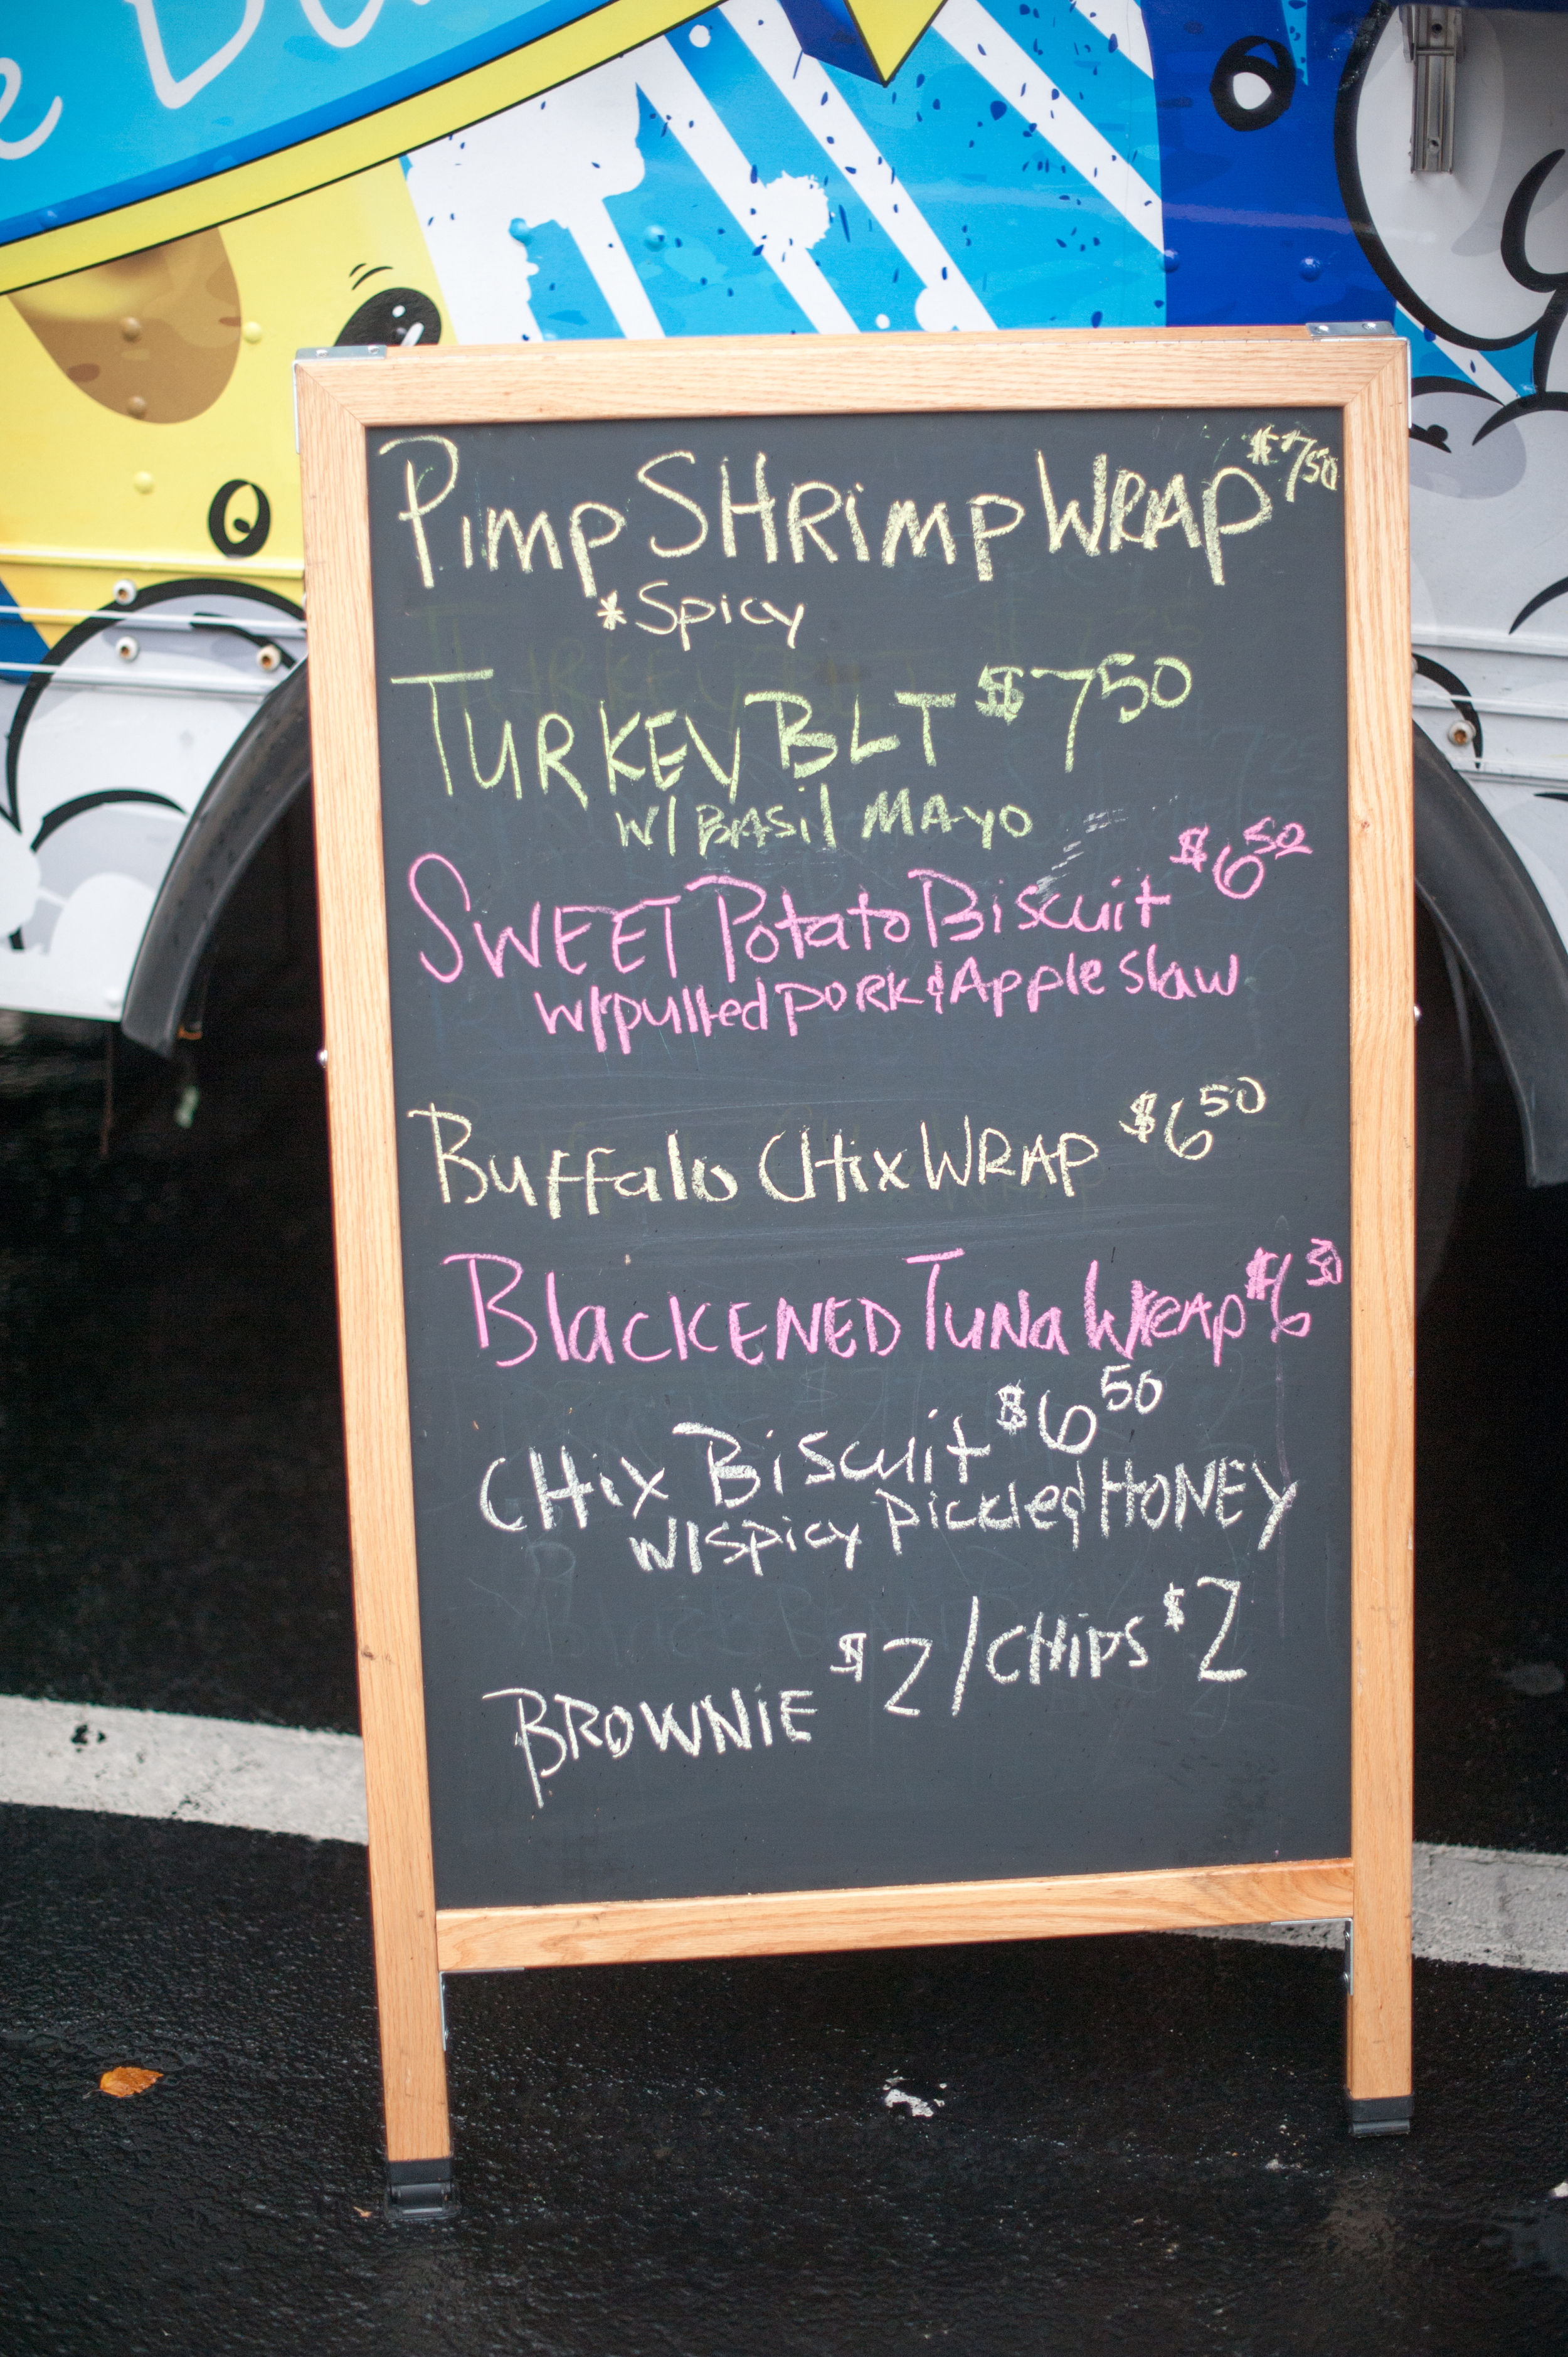 Pimp SHRimp WRAP $7.50
*Spicy
TURKEY BLT $7.50
W/ BASil MAYO
SWEET Potato Biscuit $6.50
w/pulled PORK & Apple slaw
Buffalo CHix WRAP $6.50
BlacKENED TuNa WRAP $6.50
CHix Biscuit $6.50
W/ spicy pickled HONEY
BROWNiE $2 / CHiPS $2